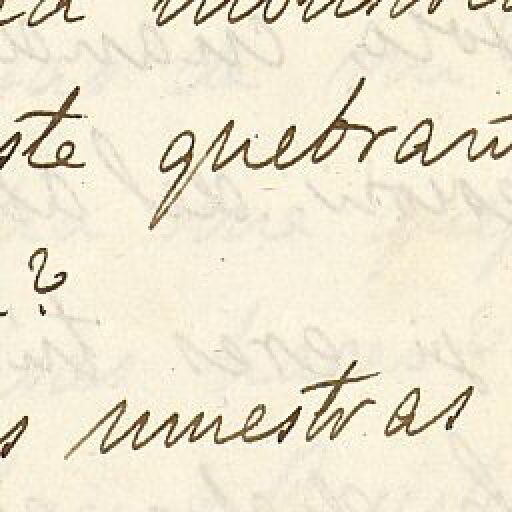 ste quebran
?
s muestras